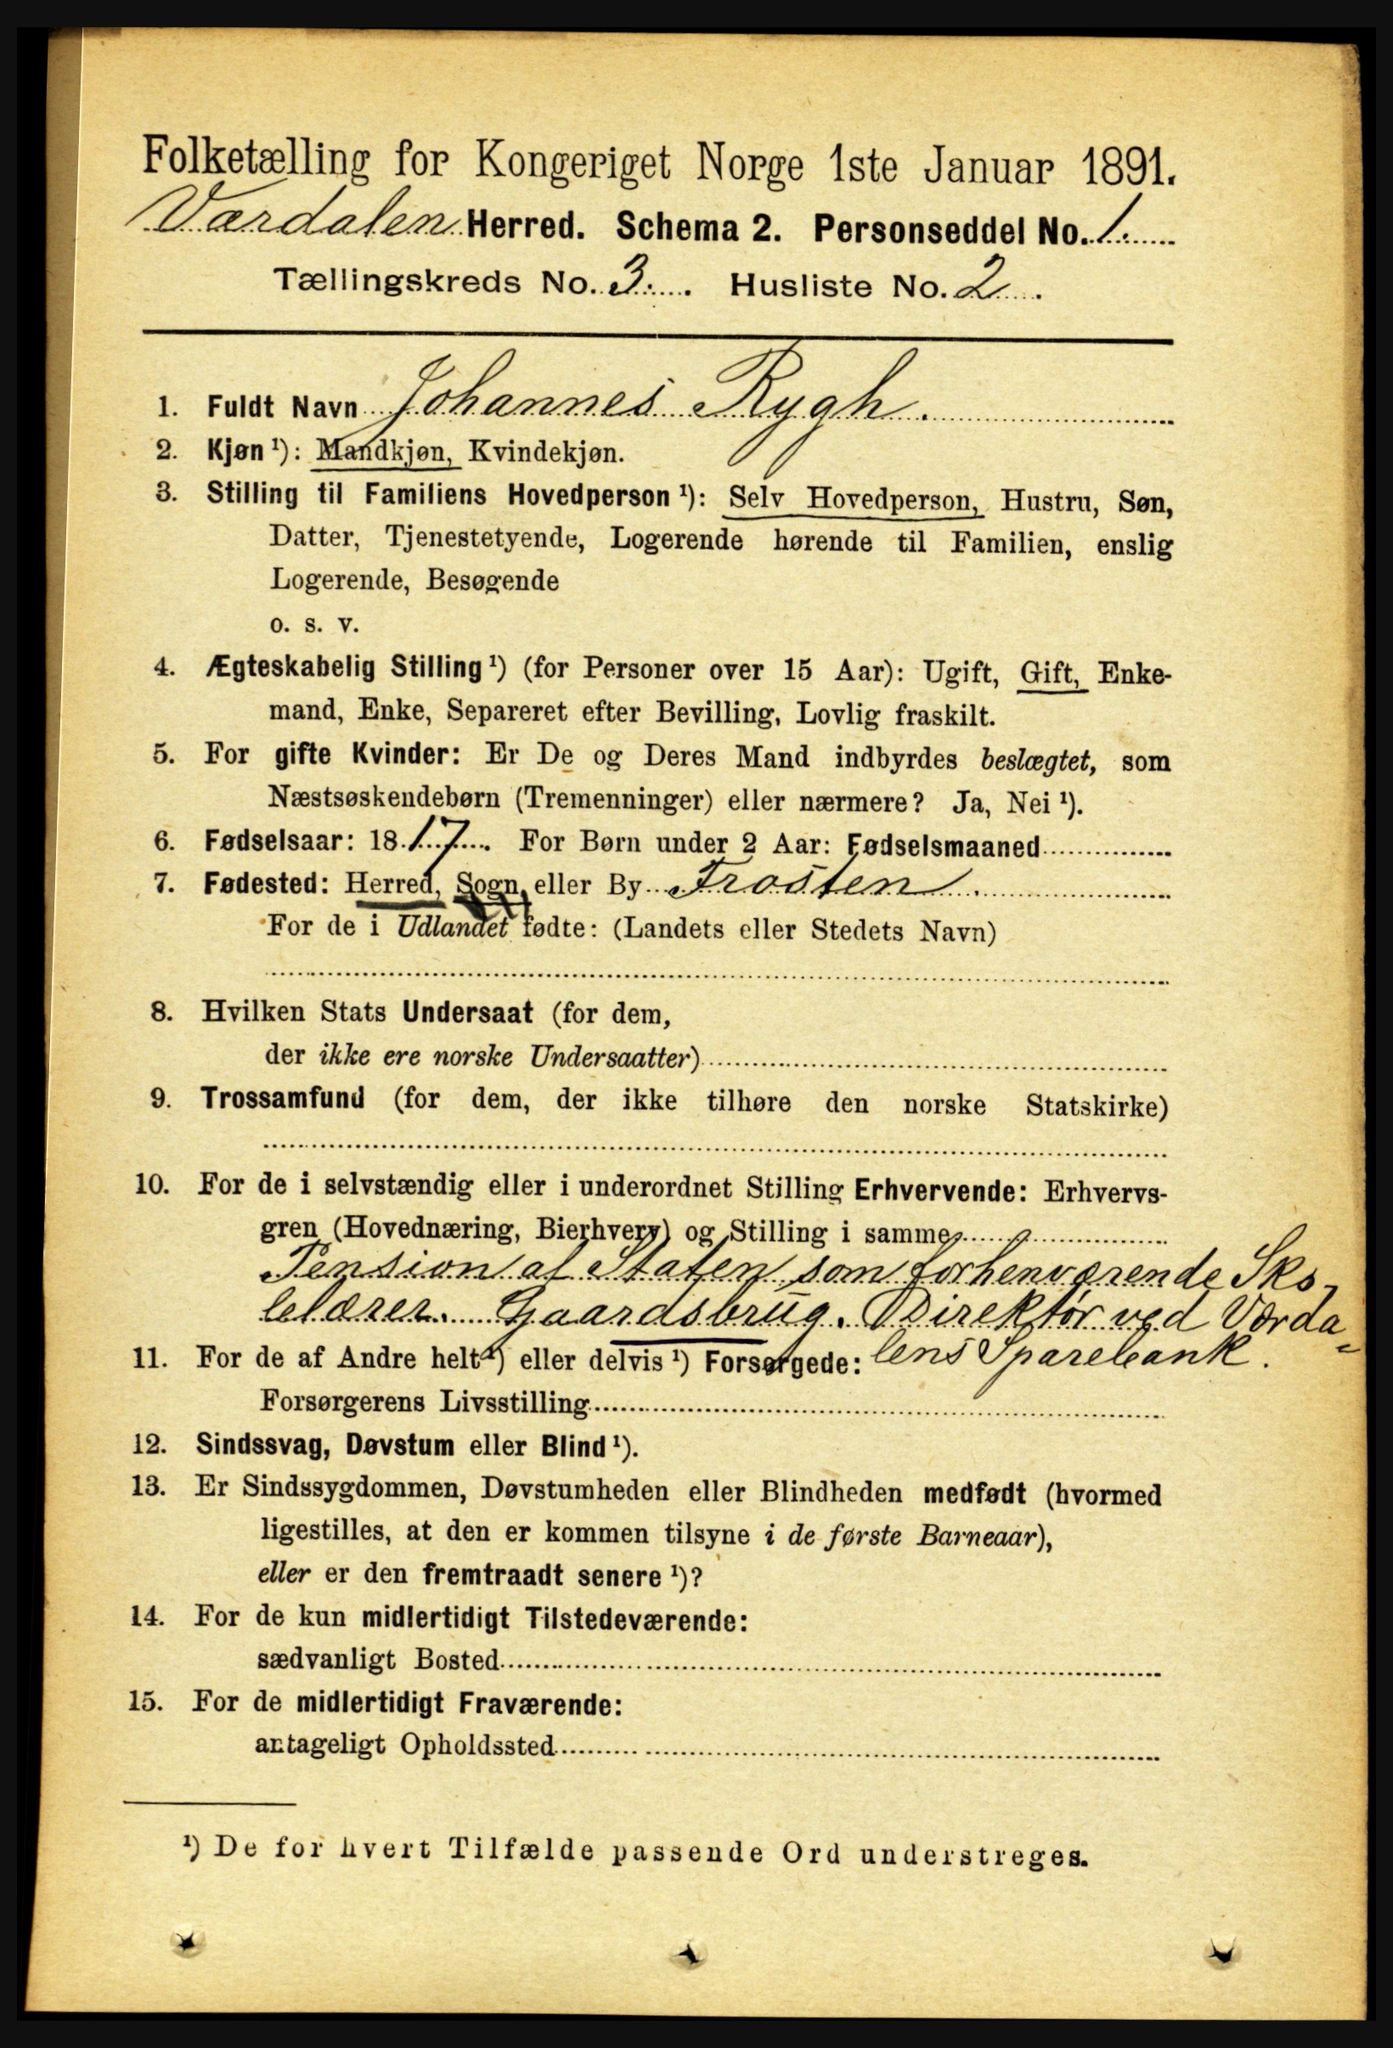 Folketælling for Kongeriget Norge 1ste Januar 1891.
Værdalen Herred. Schema 2. Personseddel No. 1.
Tællingskreds No. 3. Husliste No. 2.
1. Fuldt Navn Johannes Rygh.
2. Kjøn ¹): Mandkjøn, Kvindekjøn.
3. Stilling til Familiens Hovedperson ¹): Selv Hovedperson, Hustru, Søn,
Datter, Tjenestetyende, Logerende hørende til Familien, enslig
Logerende, Besøgende
o. s. v.
4. Ægteskabelig Stilling ¹) (for Personer over 15 Aar): Ugift, Gift, Enke-
mand, Enke, Separeret efter Bevilling, Lovlig fraskilt.
5. For gifte Kvinder: Er De og Deres Mand indbyrdes beslægtet, som
Næstsøskendebørn (Tremenninger) eller nærmere? Ja, Nei ¹).
6. Fødselsaar: 1817. For Børn under 2 Aar: Fødselsmaaned
7. Fødested: Herred, Sogn, eller By Frosten.
For de i Udlandet fødte: (Landets eller Stedets Navn)
8. Hvilken Stats Undersaat (for dem,
der ikke ere norske Undersaatter)
9. Trossamfund (for dem, der ikke tilhøre den norske Statskirke)
10. For de i selvstændig eller i underordnet Stilling Erhvervende: Erhvervs-
gren (Hovednæring, Bierhverv) og Stilling i samme
Pension af Staten som forhenværende Sko-
lelærer. Gaardsbrug. Direktør ved Værda-
11. For de af Andre helt ¹) eller delvis ¹) Forsørgede: lens Sparebank.
Forsørgerens Livsstilling
12. Sindssvag, Døvstum eller Blind ¹).
13. Er Sindssygdommen, Døvstumheden eller Blindheden medfødt (hvormed
ligestilles, at den er kommen tilsyne i de første Barneaar),
eller er den fremtraadt senere ¹)?
14. For de kun midlertidigt Tilstedeværende:
sædvanligt Bosted
15. For de midlertidigt Fraværende:
antageligt Opholdssted
¹) De for hvert Tilfælde passende Ord understreges.